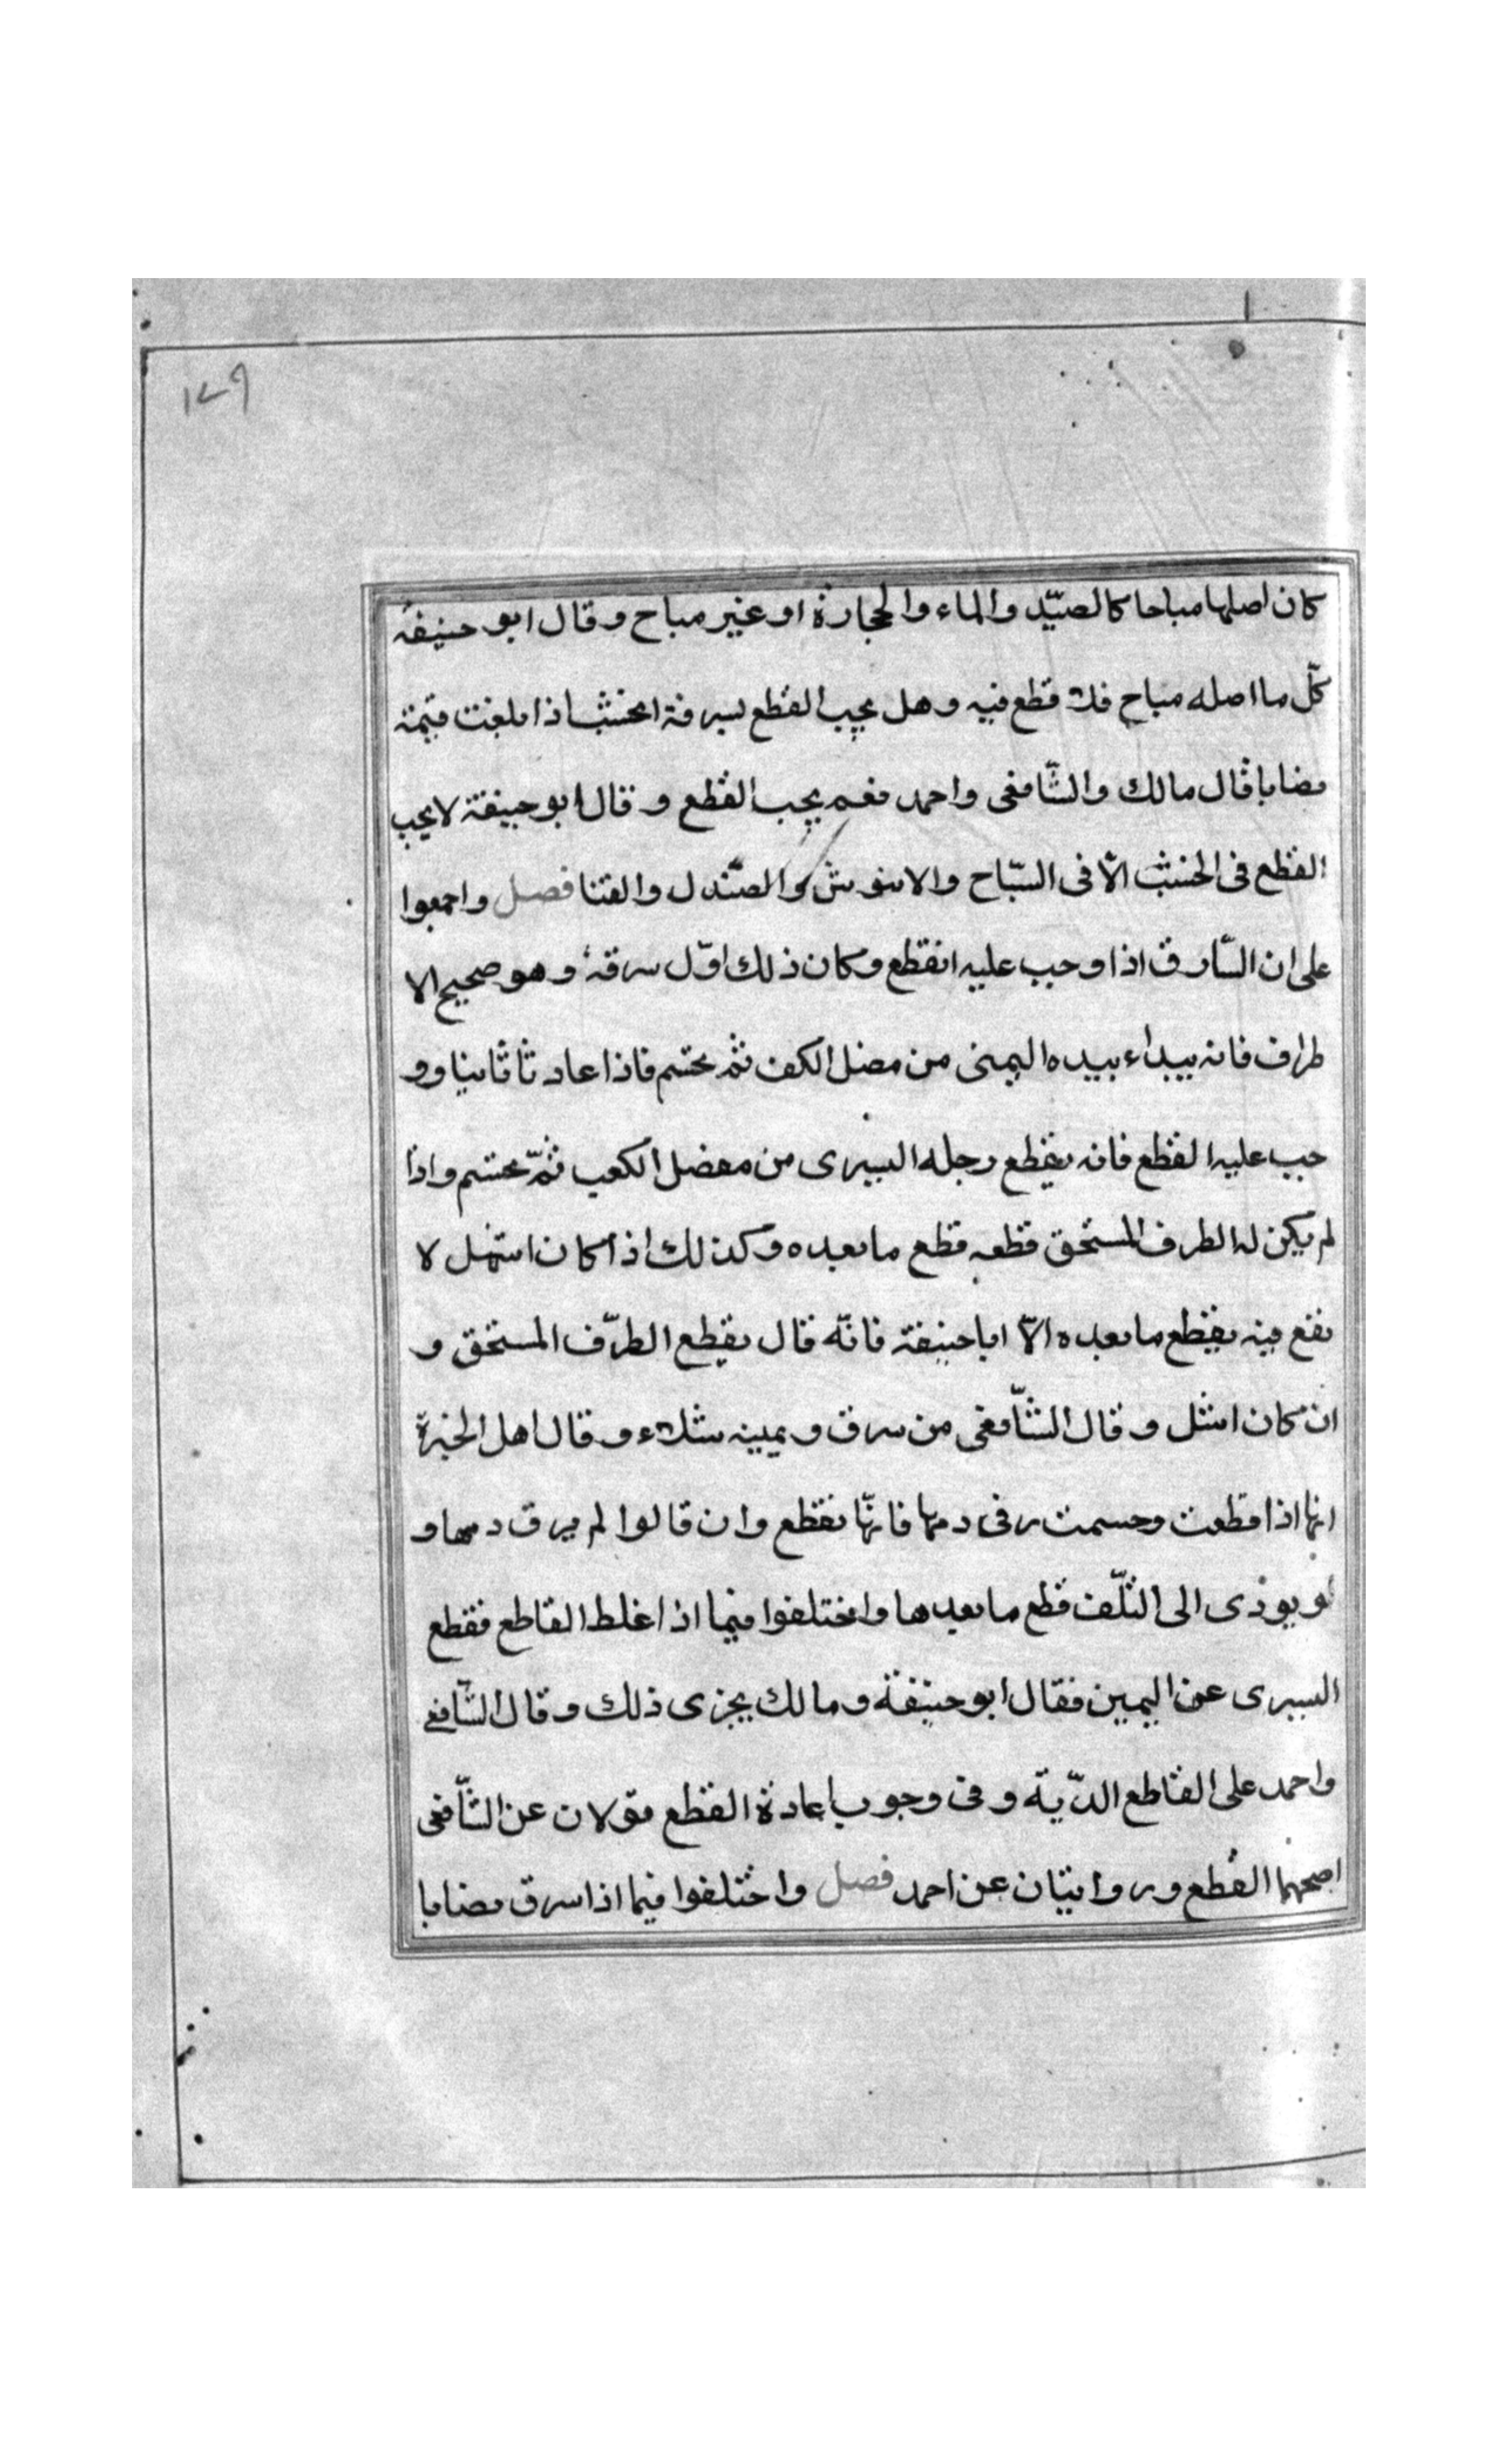 ١٧٩
كان اصلها مباحا كالصيّد والماء والحجارة او غير مباح وقال ابو حنيفة
كلّ ما اصله مباح فلا قطع فيه وهل يجب القطع بسرقة الخشب اذا بلغت قيمته
نصابا فقال مالك والشّافعى واحمد نعم يجب القطع وقال ابو حنيفة لا يجب
القطع فى الخشب الّا فى السّاج والابنوس والصّندل والقنا فصل واجمعوا
على ان السّارق اذا وجب عليه القطع وكان ذلك اوّل سرقة وهو صحيح الا
طراف فانه يبداء بيده اليمنى من مفصل الكف ثمّ تحسم فاذا عاد ثانيا وو
جب عليه القطع فانه يقطع رجله اليسرى من مفصل الكعب ثمّ تحسم واذا
لم يكن له الطرف المستحق قطعه قطع ما بعده وكذلك اذا كان اشل لا
نفع فيه يقطع ما بعده الّا ابا حنيفة فانّه قال يقطع الطرّف المستحق و
ان كان اشل وقال الشّافعى من سرق ويمينه شلاء وقال اهل الخبرة
انها اذا قطعت وحسمت رقى دمها فانّها تقطع وان قالوا لم يرق دمها و
يودى الى التلّف قطع ما بعدها واختلفوا فيما اذا غلط القاطع فقطع
اليسرى عن اليمين فقال ابو حنيفة ومالك يجزى ذلك وقال الشّافعى
واحمد على القاطع الدّية وفى وجوب اعادة القطع قولان عن الشّافعى
اصحهما القطع وروايتان عن احمد فصل واختلفوا فيما اذا سرق نصابا